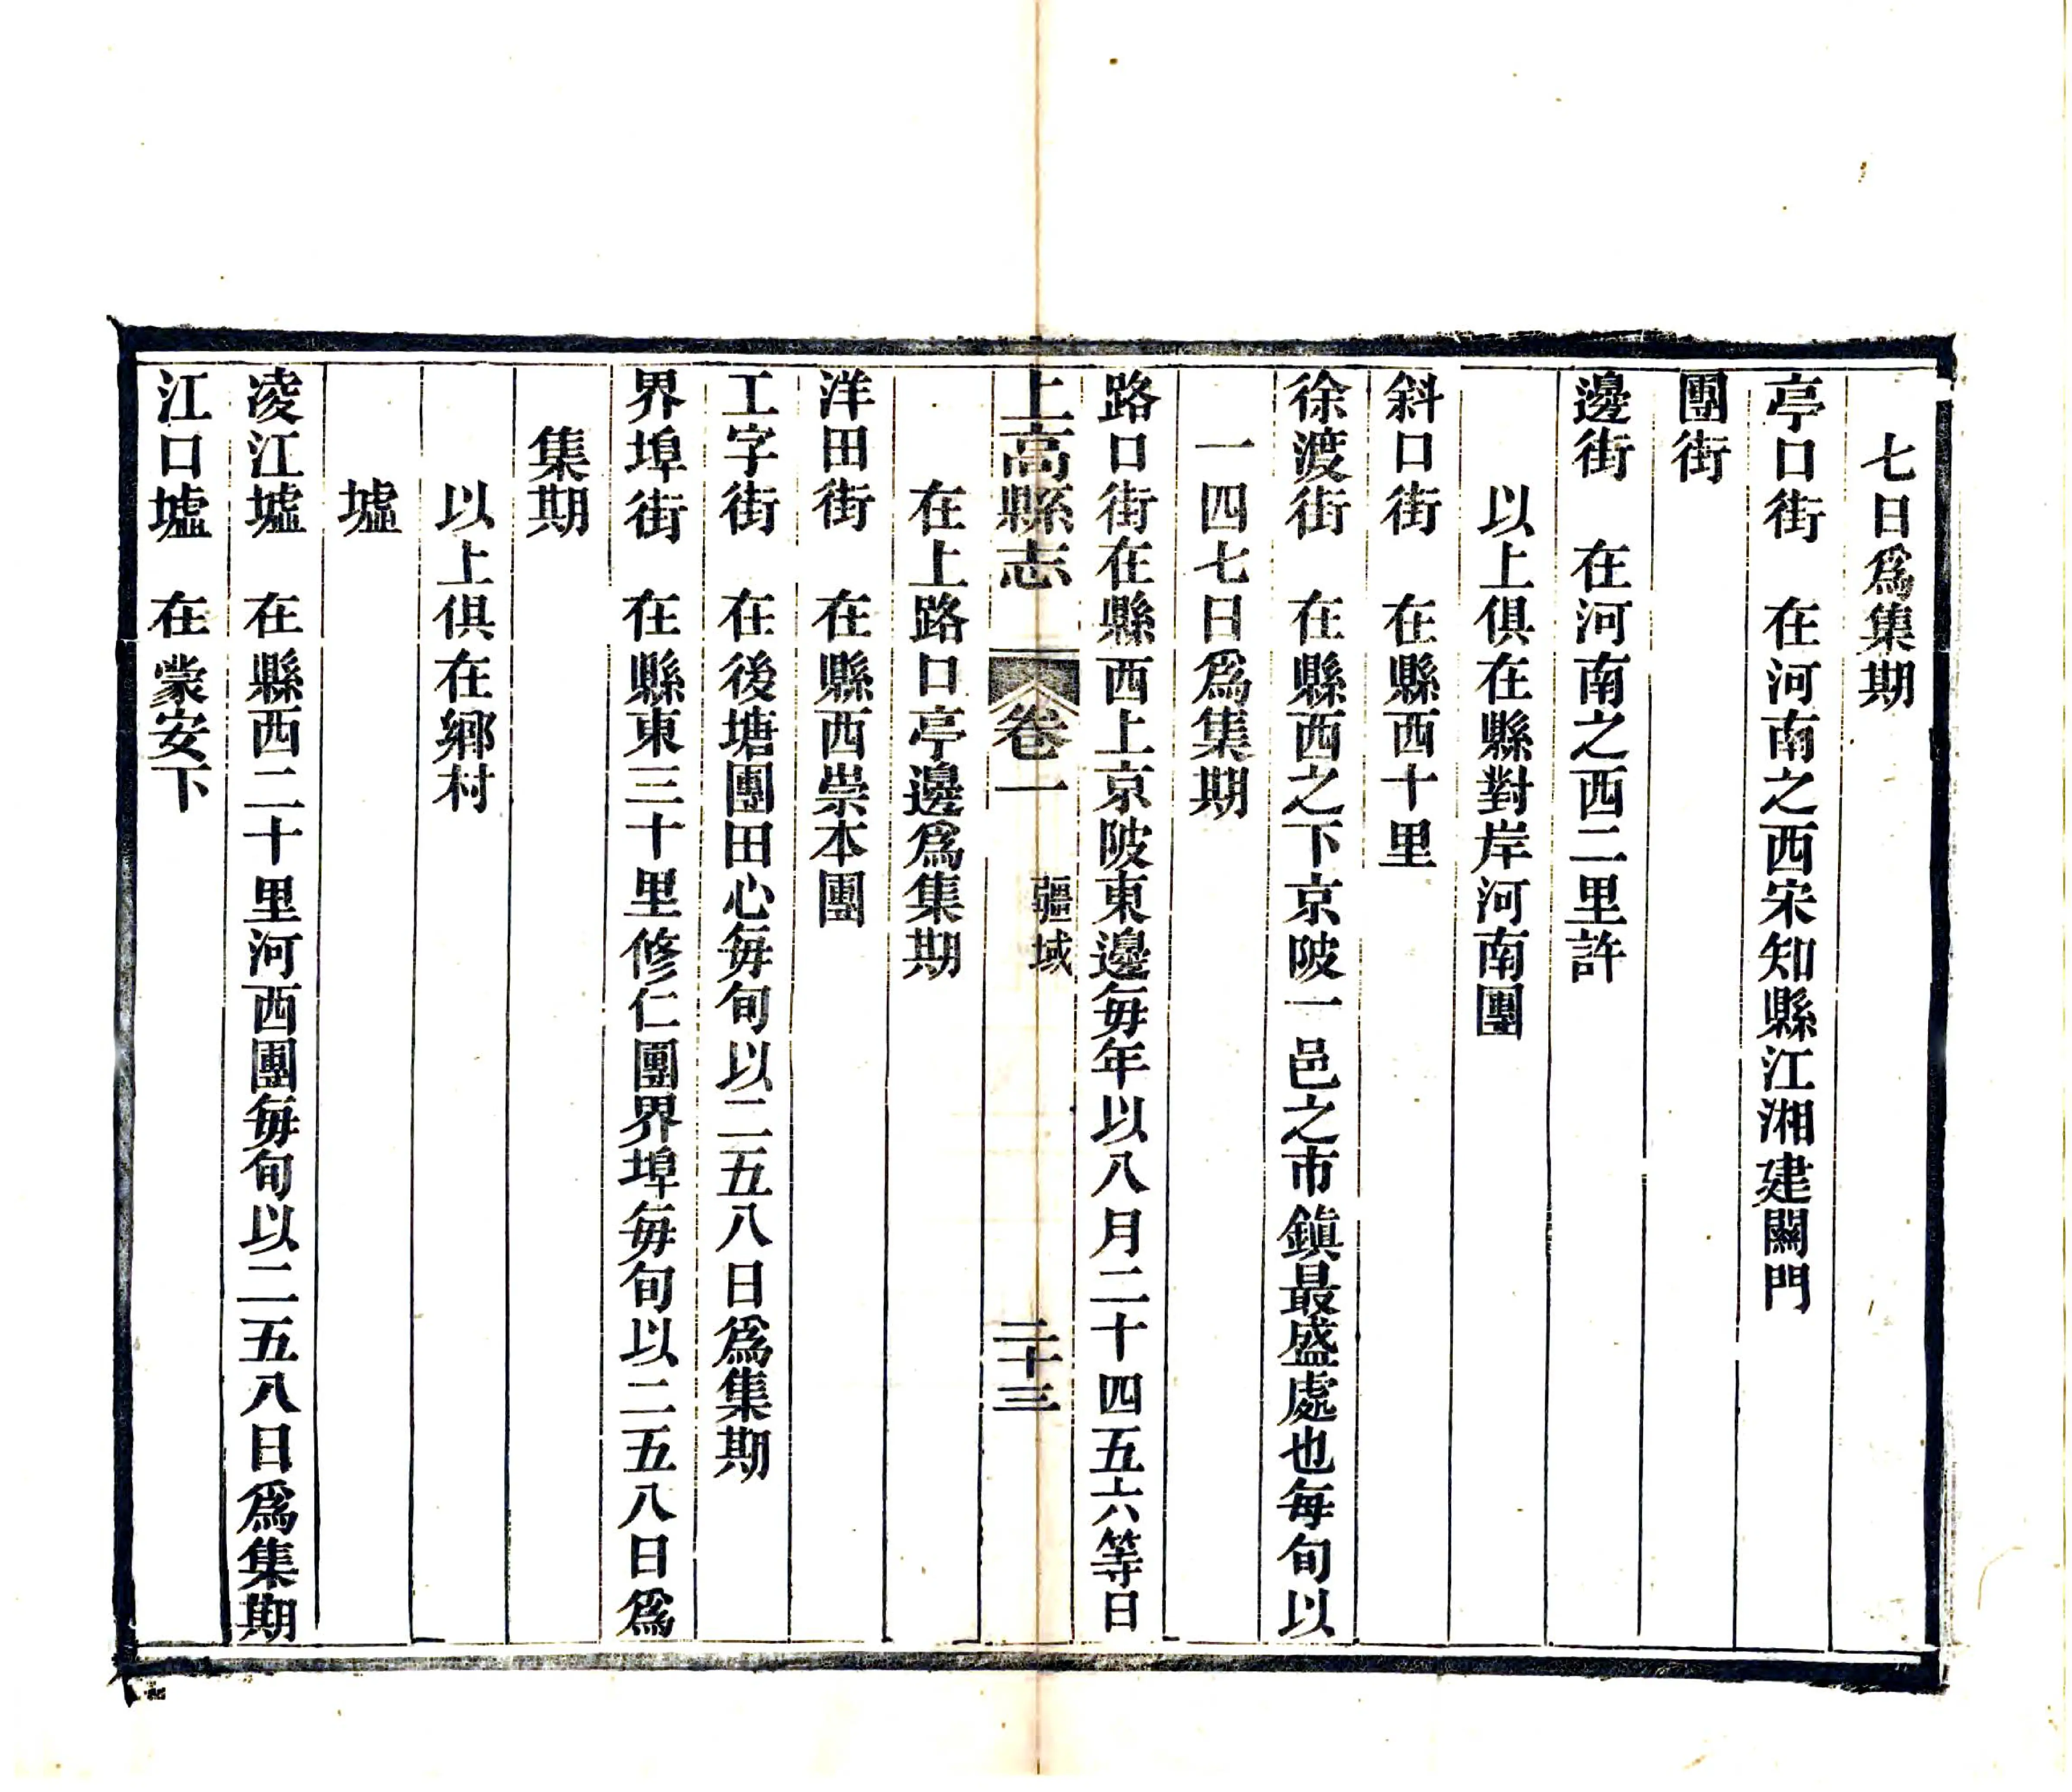 七日爲集期
亭口街　在河南之西宋知縣江湘建闢門
團街
邊街　在河南之西二里許
以上俱在縣對岸河南團
斜口街　在縣西十里
徐渡街　在縣西之下京陂一邑之市鎮最盛處也每旬以
一四七日爲集期
路口街在縣西上京陂東邊每年以八月二十四五六等日
上高縣志　卷一　疆域　二十三
在上路口亭邊爲集期
洋田街　在縣西崇本團
工字街　在後塘團田心每旬以二五八日爲集期
界埠街　在縣東三十里修仁團界埠每旬以二五八日爲
集期
以上俱在鄉村
墟
凌江墟　在縣西二十里河西團每旬以二五八日爲集期
江口墟　在蒙安下